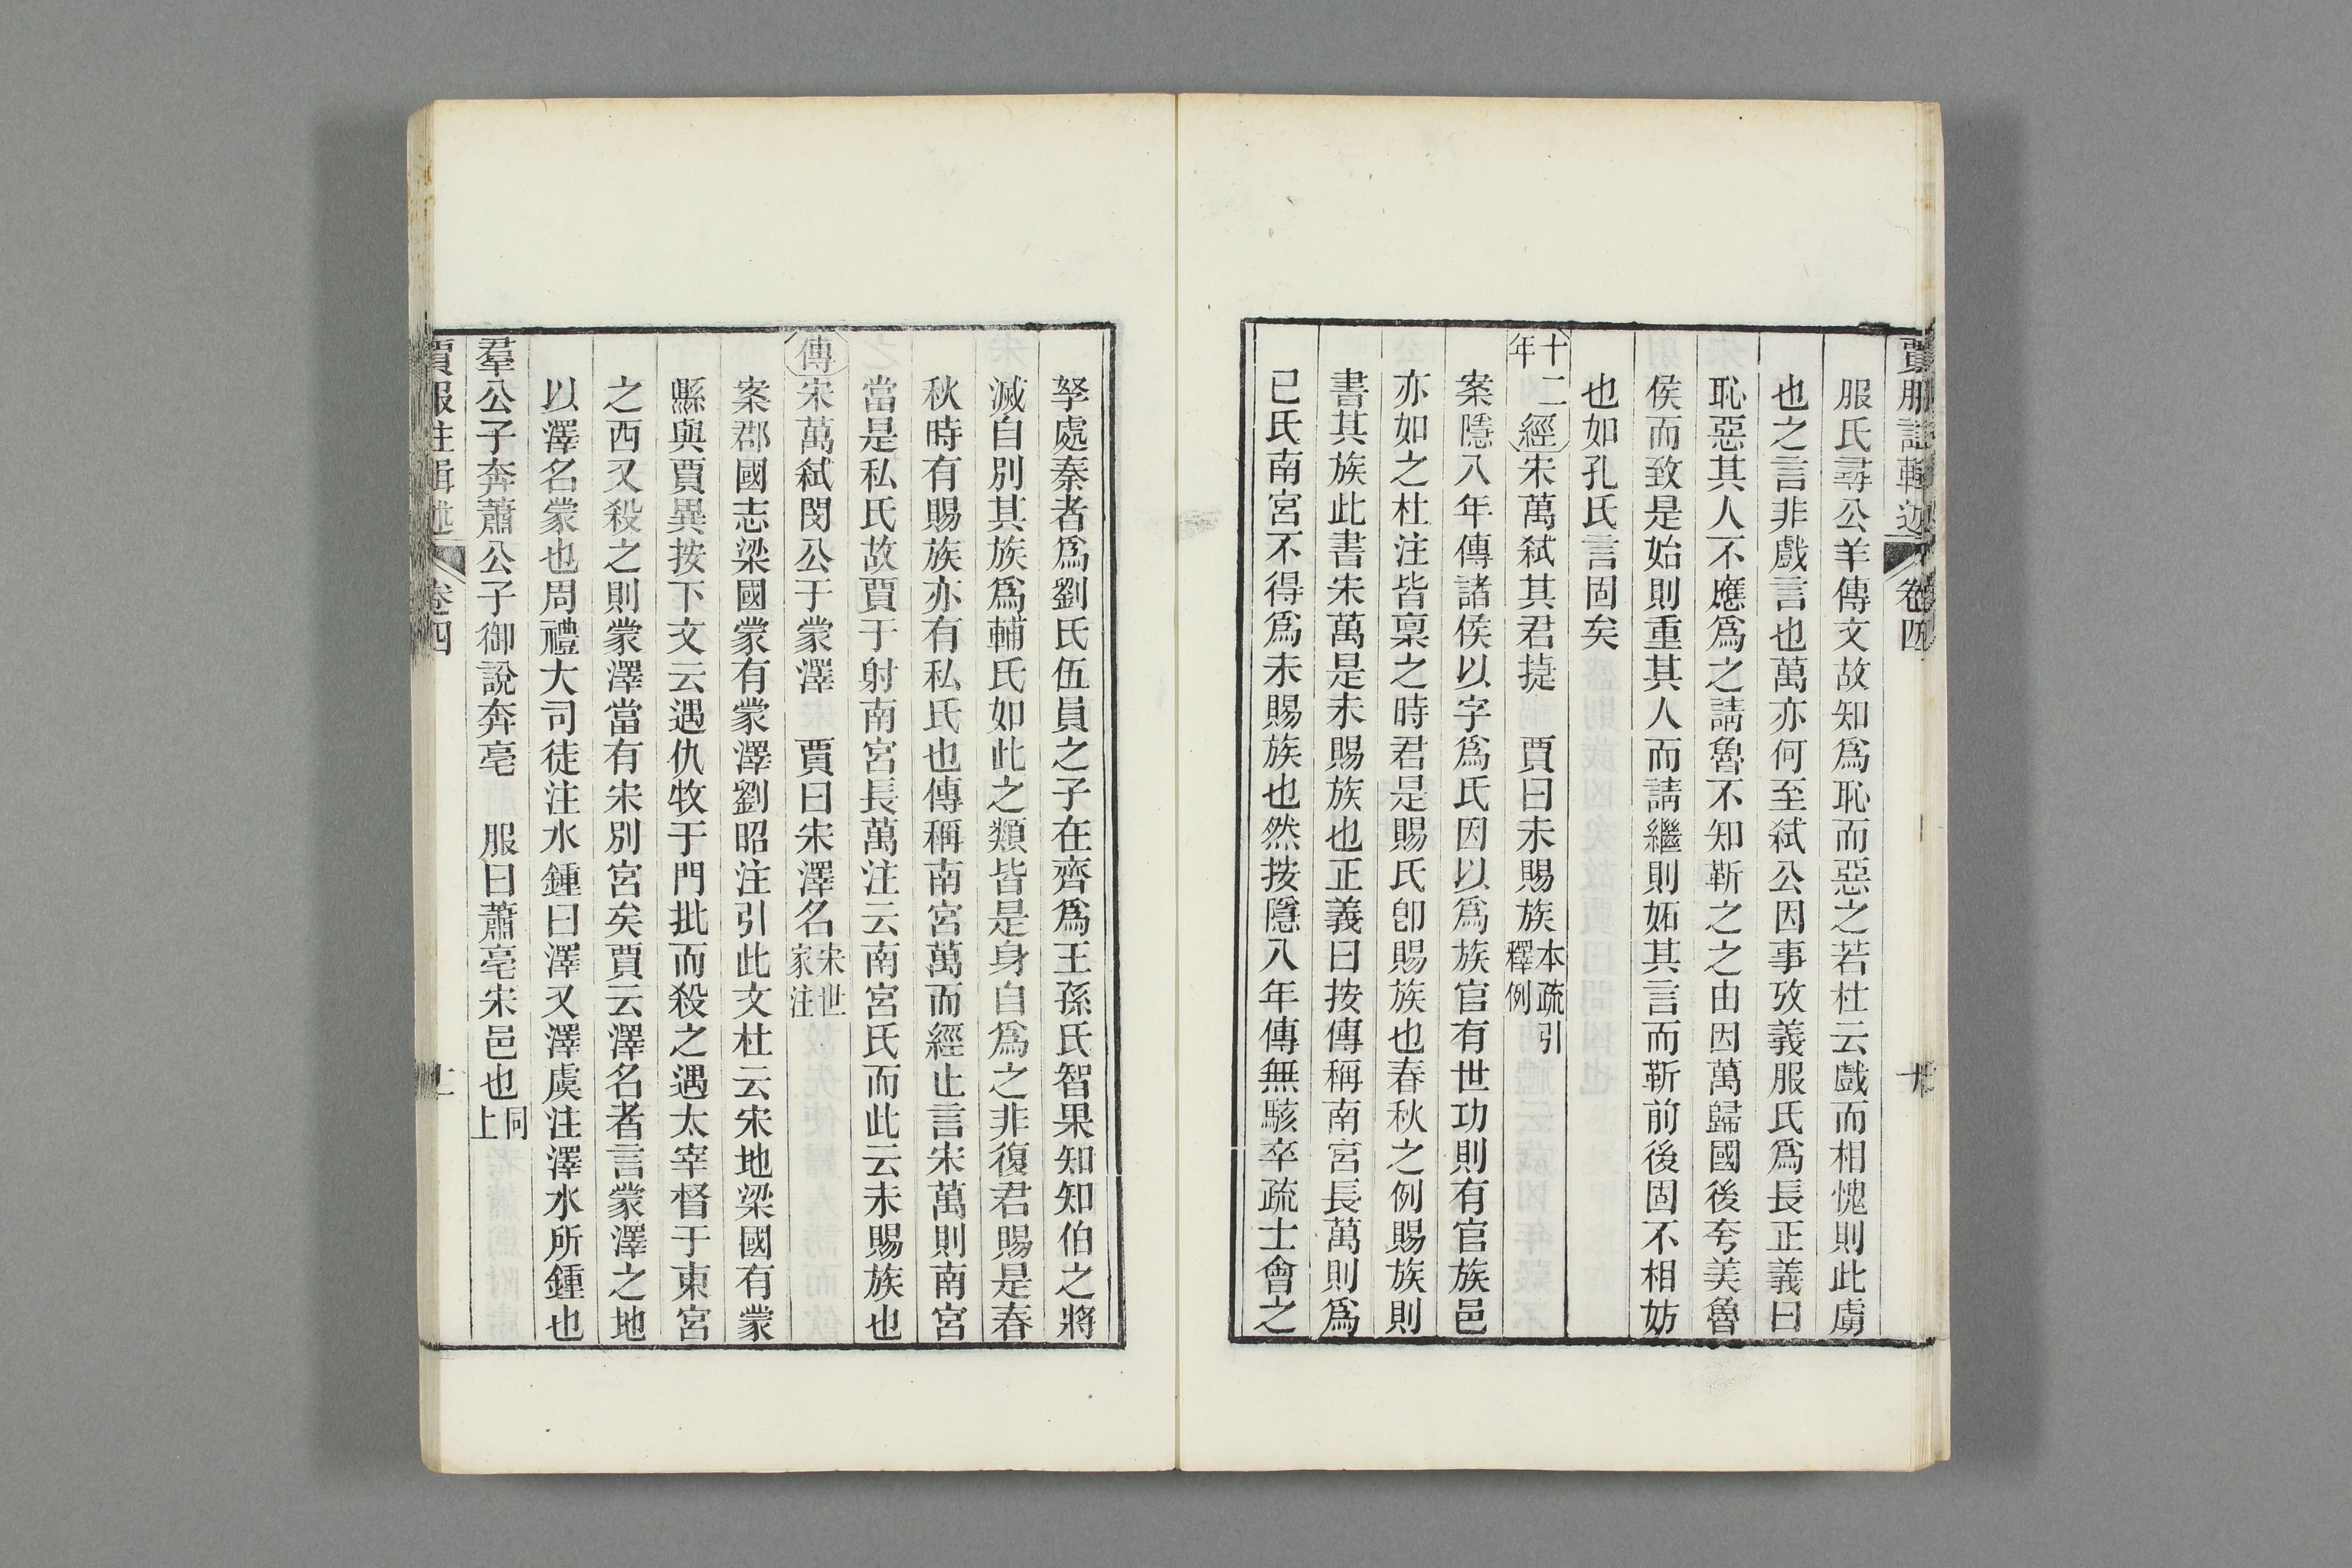 賈服註輯述 卷四 十
服氏尋公羊傳文故知爲恥而惡之若杜云戲而相愧則此虜
也之言非戲言也萬亦何至弒公因事攷義服氏爲長正義曰
恥惡其人不應爲之請魯不知靳之之由因萬歸國後夸美魯
侯而致是始則重其人而請繼則妬其言而靳前後固不相妨
也如孔氏言固矣
十二年經宋萬弒其君捷 賈曰未賜族本疏引釋例
案隱八年傳諸侯以字爲氏因以爲族官有世功則有官族邑
亦如之杜注皆稟之時君是賜氏卽賜族也春秋之例賜族則
書其族此書宋萬是未賜族也正義曰按傳稱南宮長萬則爲
已氏南宮不得爲未賜族也然按隱八年傳無駭卒疏士會之
孥處秦者爲劉氏伍員之子在齊爲王孫氏智果知知伯之將
滅自別其族爲輔氏如此之類皆是身自爲之非復君賜是春
秋時有賜族亦有私氏也傳稱南宮萬而經止言宋萬則南宮
當是私氏故賈于射南宮長萬注云南宮氏而此云未賜族也
傳宋萬弒閔公于蒙澤 賈曰宋澤名宋世家注
案郡國志梁國蒙有蒙澤劉昭注引此文杜云宋地梁國有蒙
縣與賈異按下文云遇仇牧于門批而殺之遇太宰督于東宮
之西又殺之則蒙澤當有宋別宮矣賈云澤名者言蒙澤之地
以澤名蒙也周禮大司徒注水鍾曰澤又澤虞注澤水所鍾也
羣公子奔蕭公子御說奔亳 服曰蕭亳宋邑也同上
賈服注輯述 卷四